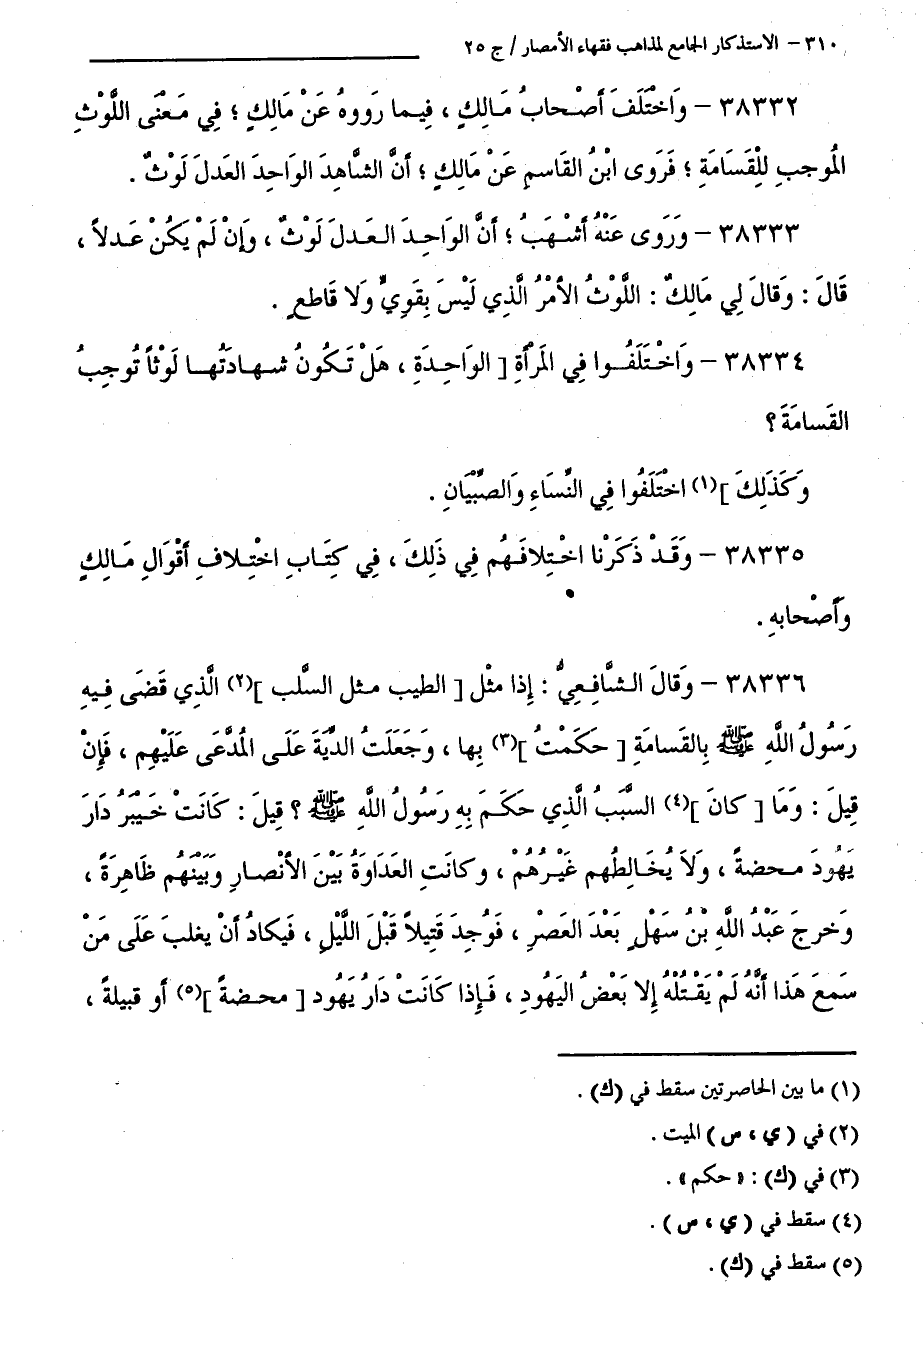 ٣١٠ – الاستذكار الجامع لمذاهب فقهاء الأمصار / ج ٢٥
٣٨٣٣٢ – وَاخْتَلَفَ أَصْحابُ مَالِكٍ ، فِيما رَوَوهُ عَنْ مَالِكٍ ؛ فِي مَعْنَى اللَّوْثِ
المُوجبِ لِلْقَسَامَةِ ؛ فَرَوى ابْنُ القَاسمِ عَنْ مَالِكٍ ؛ أَنَّ الشَّاهِدَ الوَاحِدَ العَدلَ لَوْثٌ .
٣٨٣٣٣ – وَرَوَى عَنْهُ أَشْهَبُ ؛ أَنَّ الوَاحِدَ العَدلَ لَوْثٌ ، وَإِنْ لَمْ يَكُنْ عَدلاً ،
قَالَ : وَقالَ لِي مَالِكٌ : اللَّوْثُ الأَمْرُ الَّذي لَيْسَ بِقَويٍّ وَلا قَاطعٍ .
٣٨٣٣٤ – وَاخْتَلَفُوا فِي المَرْأَةِ [ الوَاحِدَةِ ، هَلْ تَكُونُ شهادَتُها لَوْثاً تُوجبُ
القَسامَةَ ؟
وَكَذَلِكَ ](١) اختَلَفُوا فِي النِّسَاءِ وَالصِّبْيَانِ .
٣٨٣٣٥ – وَقَدْ ذَكَرْنا اخْتِلافَهُم فِي ذَلِكَ ، فِي كِتَابِ اخْتِلافِ أَقْوَالِ مَالِكٍ
وأَصْحابهِ .
٣٨٣٣٦ – وَقَالَ الشَّافِعِيُّ : إِذا مثْل [ الطيب مثل السلَّب ](٢) الَّذي قَضَى فِيهِ
رَسُولُ اللَّهِ ﷺ بِالقَسامَةِ [ حَكَمْتُ ](٣) بِها ، وَجَعَلَتُ الدِّيَةَ عَلَى المُدَّعَى عَلَيْهِم ، فَإِنْ
قِيلَ : وَمَا [ كانَ ](٤) السَّبَبُ الَّذي حَكَمَ بِهِ رَسُولُ اللَّهِ ﷺ ؟ قِيلَ : كَانَتْ خَيبَرُ دَارَ
يَهُودَ محضةً ، وَلَا يُخَالِطُهم غَيْرُهُمْ ، وكانَتِ العَدَاوَةُ بَيْنَ الأَنْصارِ وَبَيْنَهُم ظَاهِرَةً ،
وَخرجَ عَبْدُ اللَّهِ بْنُ سَهْلٍ بَعْدَ العَصْرِ ، فَوُجِدَ قَتِيلاً قَبْلَ اللَّيْلِ ، فَيكادُ أَنْ يغلبَ عَلَى مَنْ
سَمعَ هَذا أَنَّهُ لَمْ يَقْتُلْهُ إِلا بَعْضُ اليَهُودِ ، فَإِذا كَانَتْ دَارُ يَهُود [ محضةً ](٥) أو قبيلةً ،
(١) ما بين الحاصرتين سقط في (ك) .
(٢) في ( ي ، س ) الميت .
(٣) في (ك) : « حكم » .
(٤) سقط في ( ي ، س ) .
(٥) سقط في (ك) .